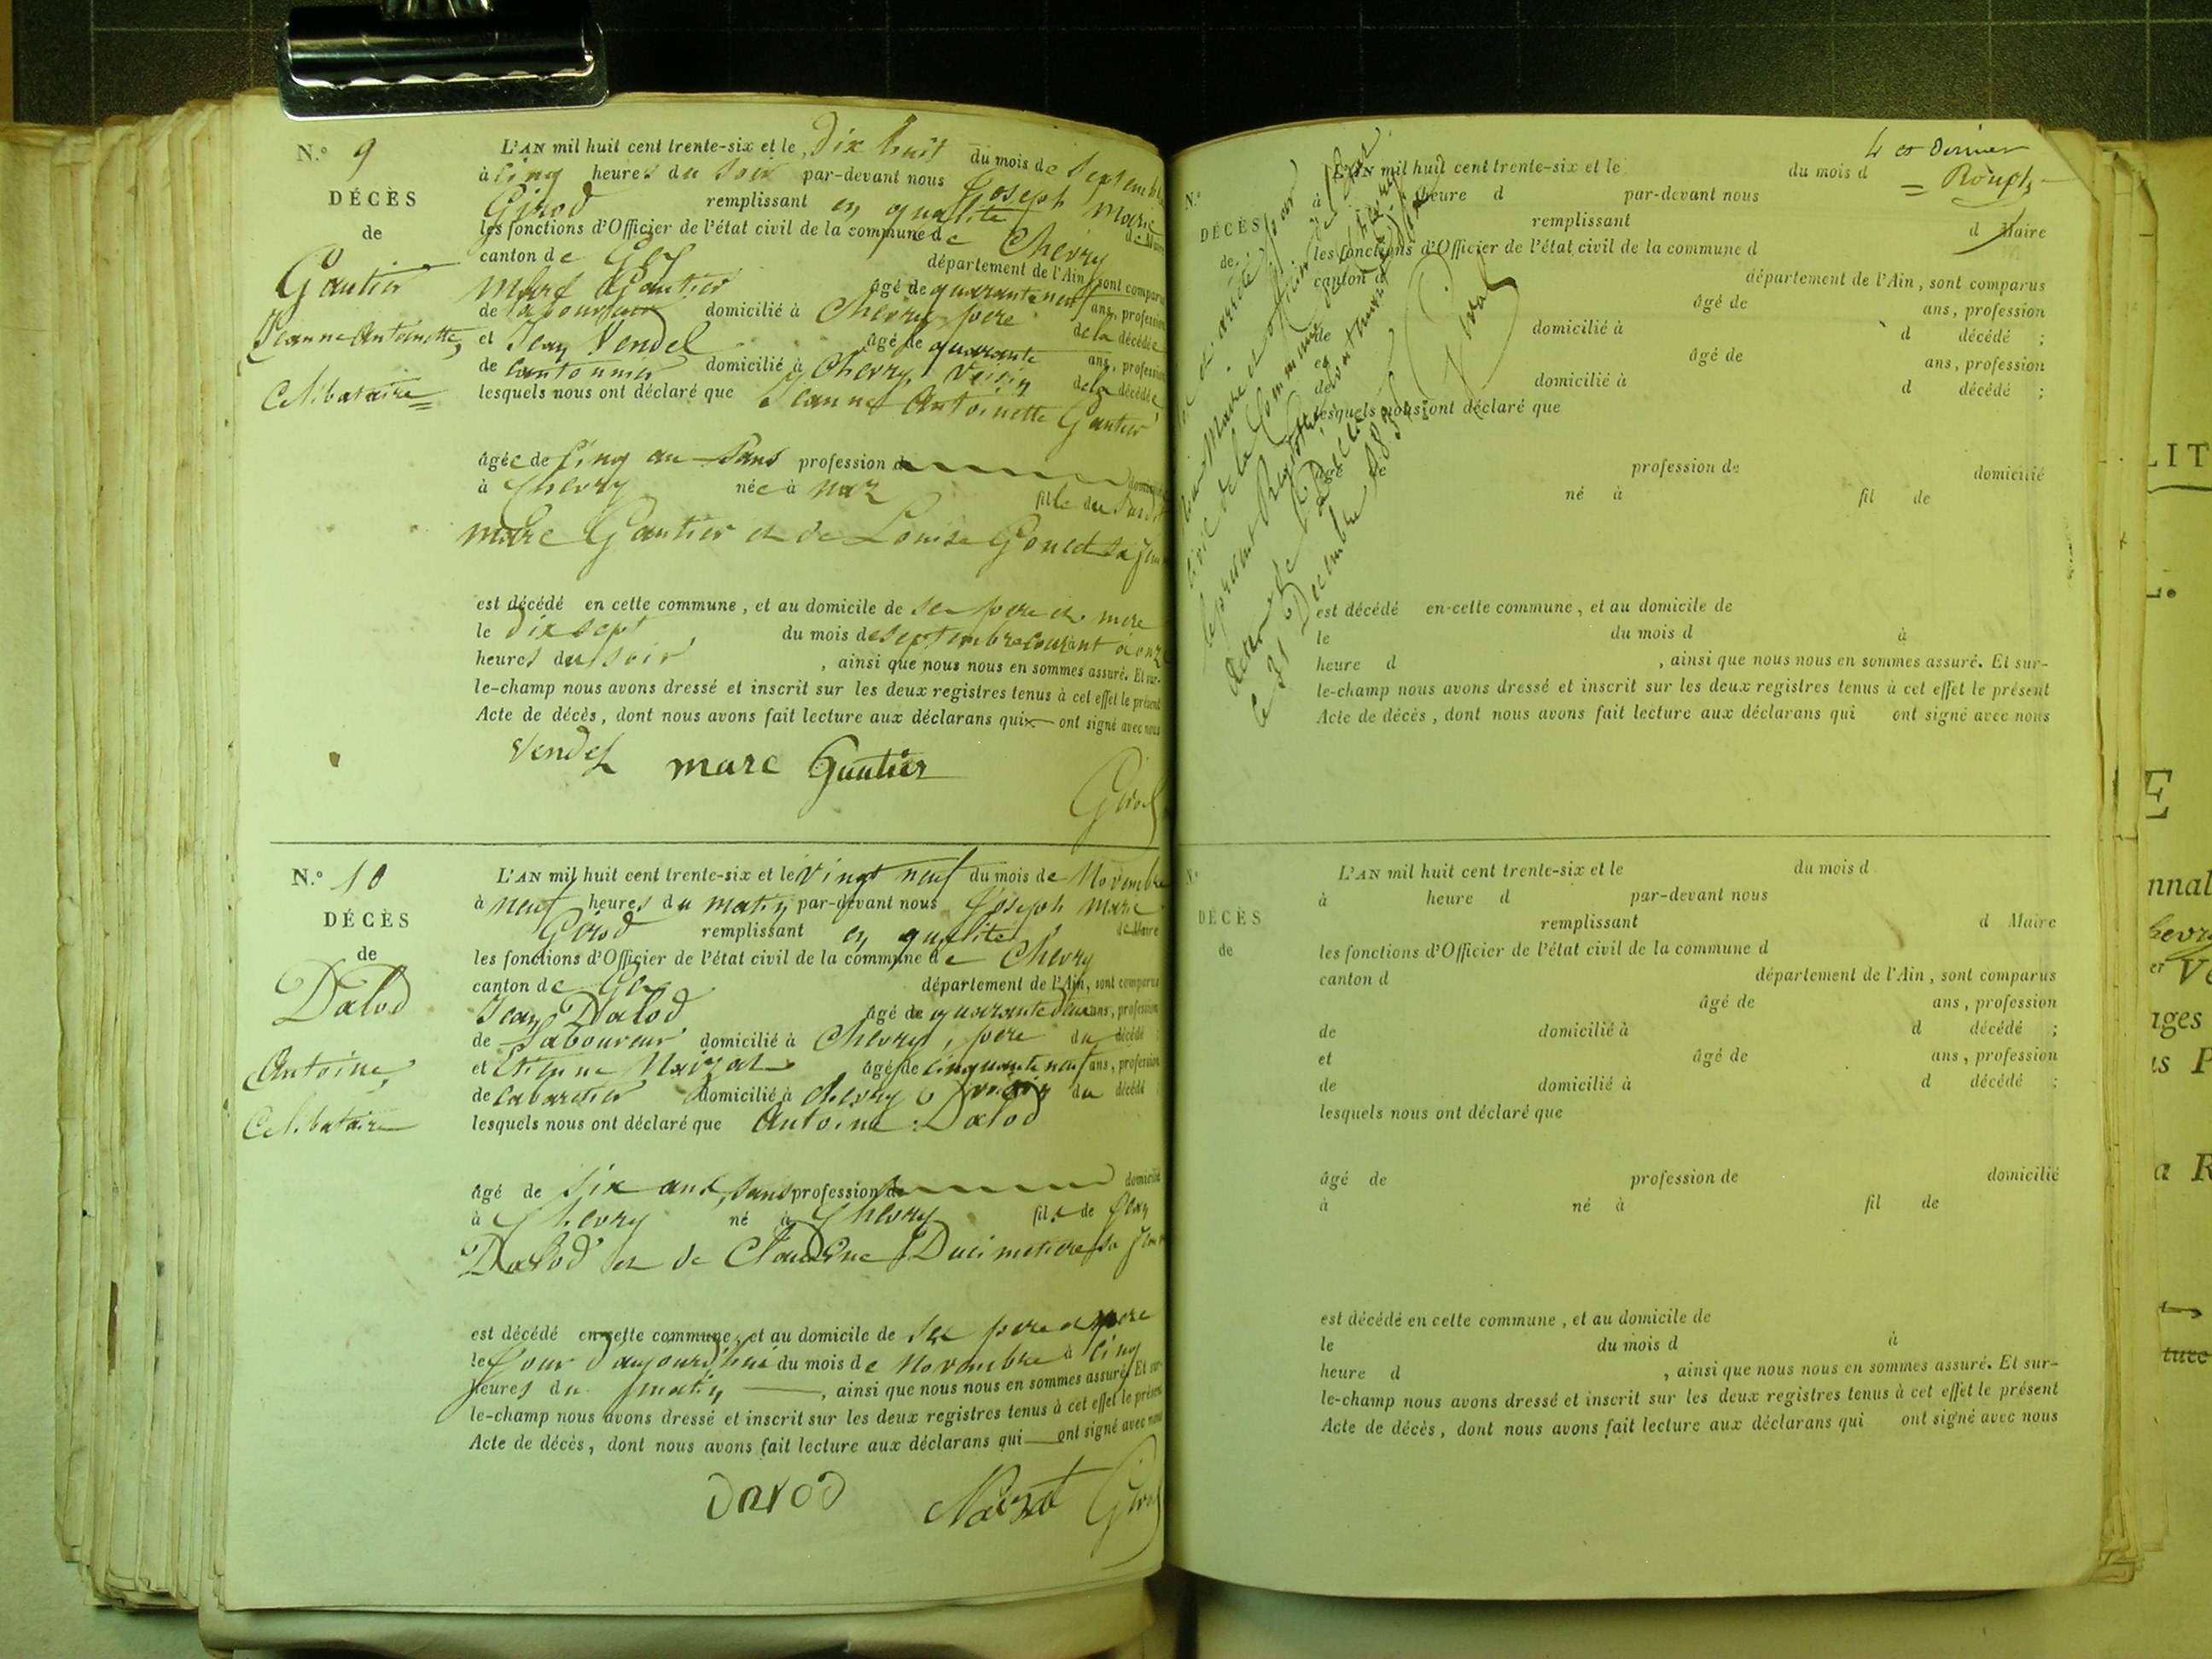 N.° 9
DÉCÈS
de
Gautier
Jeanne Antoinette,
Célibataire
L'AN mil huit cent trente-six et le dix huit du mois de Septembre
à cinq heures du soir par-devant nous Joseph Marie
Girod remplissant en qualité de Maire
les fonctions d'Officier de l'état civil de la commune de Chevry
canton de Gex département de l'Ain, sont comparus
Marc Gautier âgé de quarante neuf ans, profession
de laboureur domicilié à Chevry, père de la décédée
et Jean Vendel âgé de quarante ans, profession
de cantonnier domicilié à Chevry, voisin de la décédée
lesquels nous ont déclaré que Jeanne Antoinette Gautier
âgée de cinq ans sans profession de domiciliée
à Chevry née à fille du susdit
Marc Gautier et de Louise Gonet sa femme
est décédé en cette commune, et au domicile de ses père et mère
le dix sept du mois de septembre courant à onze
heures du soir, ainsi que nous nous en sommes assuré. Et sur-
le-champ nous avons dressé et inscrit sur les deux registres tenus à cet effet le présent
Acte de décès, dont nous avons fait lecture aux déclarans qui ont signé avec nous
Vendel marc Gautier
Girod
N.° 10
DÉCÈS
de
Dalod
Antoine,
Célibataire
L'AN mil huit cent trente-six et le vingt neuf du mois de Novembre
à neuf heures du matin par-devant nous Joseph Marie
Girod remplissant en qualité de Maire
les fonctions d'Officier de l'état civil de la commune de Chevry
canton de Gex département de l'Ain, sont comparus
Jean Dalod âgé de quarante deux ans, profession
de laboureur domicilié à Chevry, père du décédé
et Etienne âgé de cinquante neuf ans, profession
de cabaretier domicilié à chevry voisin du décédé
lesquels nous ont déclaré que Antoine Dalod
âgé de six ans, sans profession de domicilié
à Chevry né à Chevry fils de Jean
Dalod et de Claudine Ducimetière sa femme
est décédé en cette commune, et au domicile de ses père et mère
le jour d'aujourd'hui du mois de Novembre à cinq
heures du matin, ainsi que nous nous en sommes assuré. Et sur-
le-champ nous avons dressé et inscrit sur les deux registres tenus à cet effet le présent
Acte de décès, dont nous avons fait lecture aux déclarans qui ont signé avec nous
Dalod Girod
4 et dernier
N.°
DÉCÈS
de
L'AN mil huit cent trente-six et le du mois d
à heure d par-devant nous
remplissant d Maire
les fonctions d'Officier de l'état civil de la commune d
canton d département de l'Ain, sont comparus
âgé de ans, profession
de domicilié à d décédé ;
et âgé de ans, profession
de domicilié à d décédé ;
lesquels nous ont déclaré que
âgé de profession de domicilié
à né à fil de
est décédé en cette commune, et au domicile de
le du mois d à
heure d , ainsi que nous nous en sommes assuré. Et sur-
le-champ nous avons dressé et inscrit sur les deux registres tenus à cet effet le présent
Acte de décès, dont nous avons fait lecture aux déclarans qui ont signé avec nous
clos et arrêté par
Maire et officier de l'état
civil de la Commune de Chevry
le présent Registre
le 31 Décembre 1836
Girod
N.°
DÉCÈS
de
L'AN mil huit cent trente-six et le du mois d
à heure d par-devant nous
remplissant d Maire
les fonctions d'Officier de l'état civil de la commune d
canton d département de l'Ain, sont comparus
âgé de ans, profession
de domicilié à d décédé ;
et âgé de ans, profession
de domicilié à d décédé ;
lesquels nous ont déclaré que
âgé de profession de domicilié
à né à fil de
est décédé en cette commune, et au domicile de
le du mois d à
heure d , ainsi que nous nous en sommes assuré. Et sur-
le-champ nous avons dressé et inscrit sur les deux registres tenus à cet effet le présent
Acte de décès, dont nous avons fait lecture aux déclarans qui ont signé avec nous